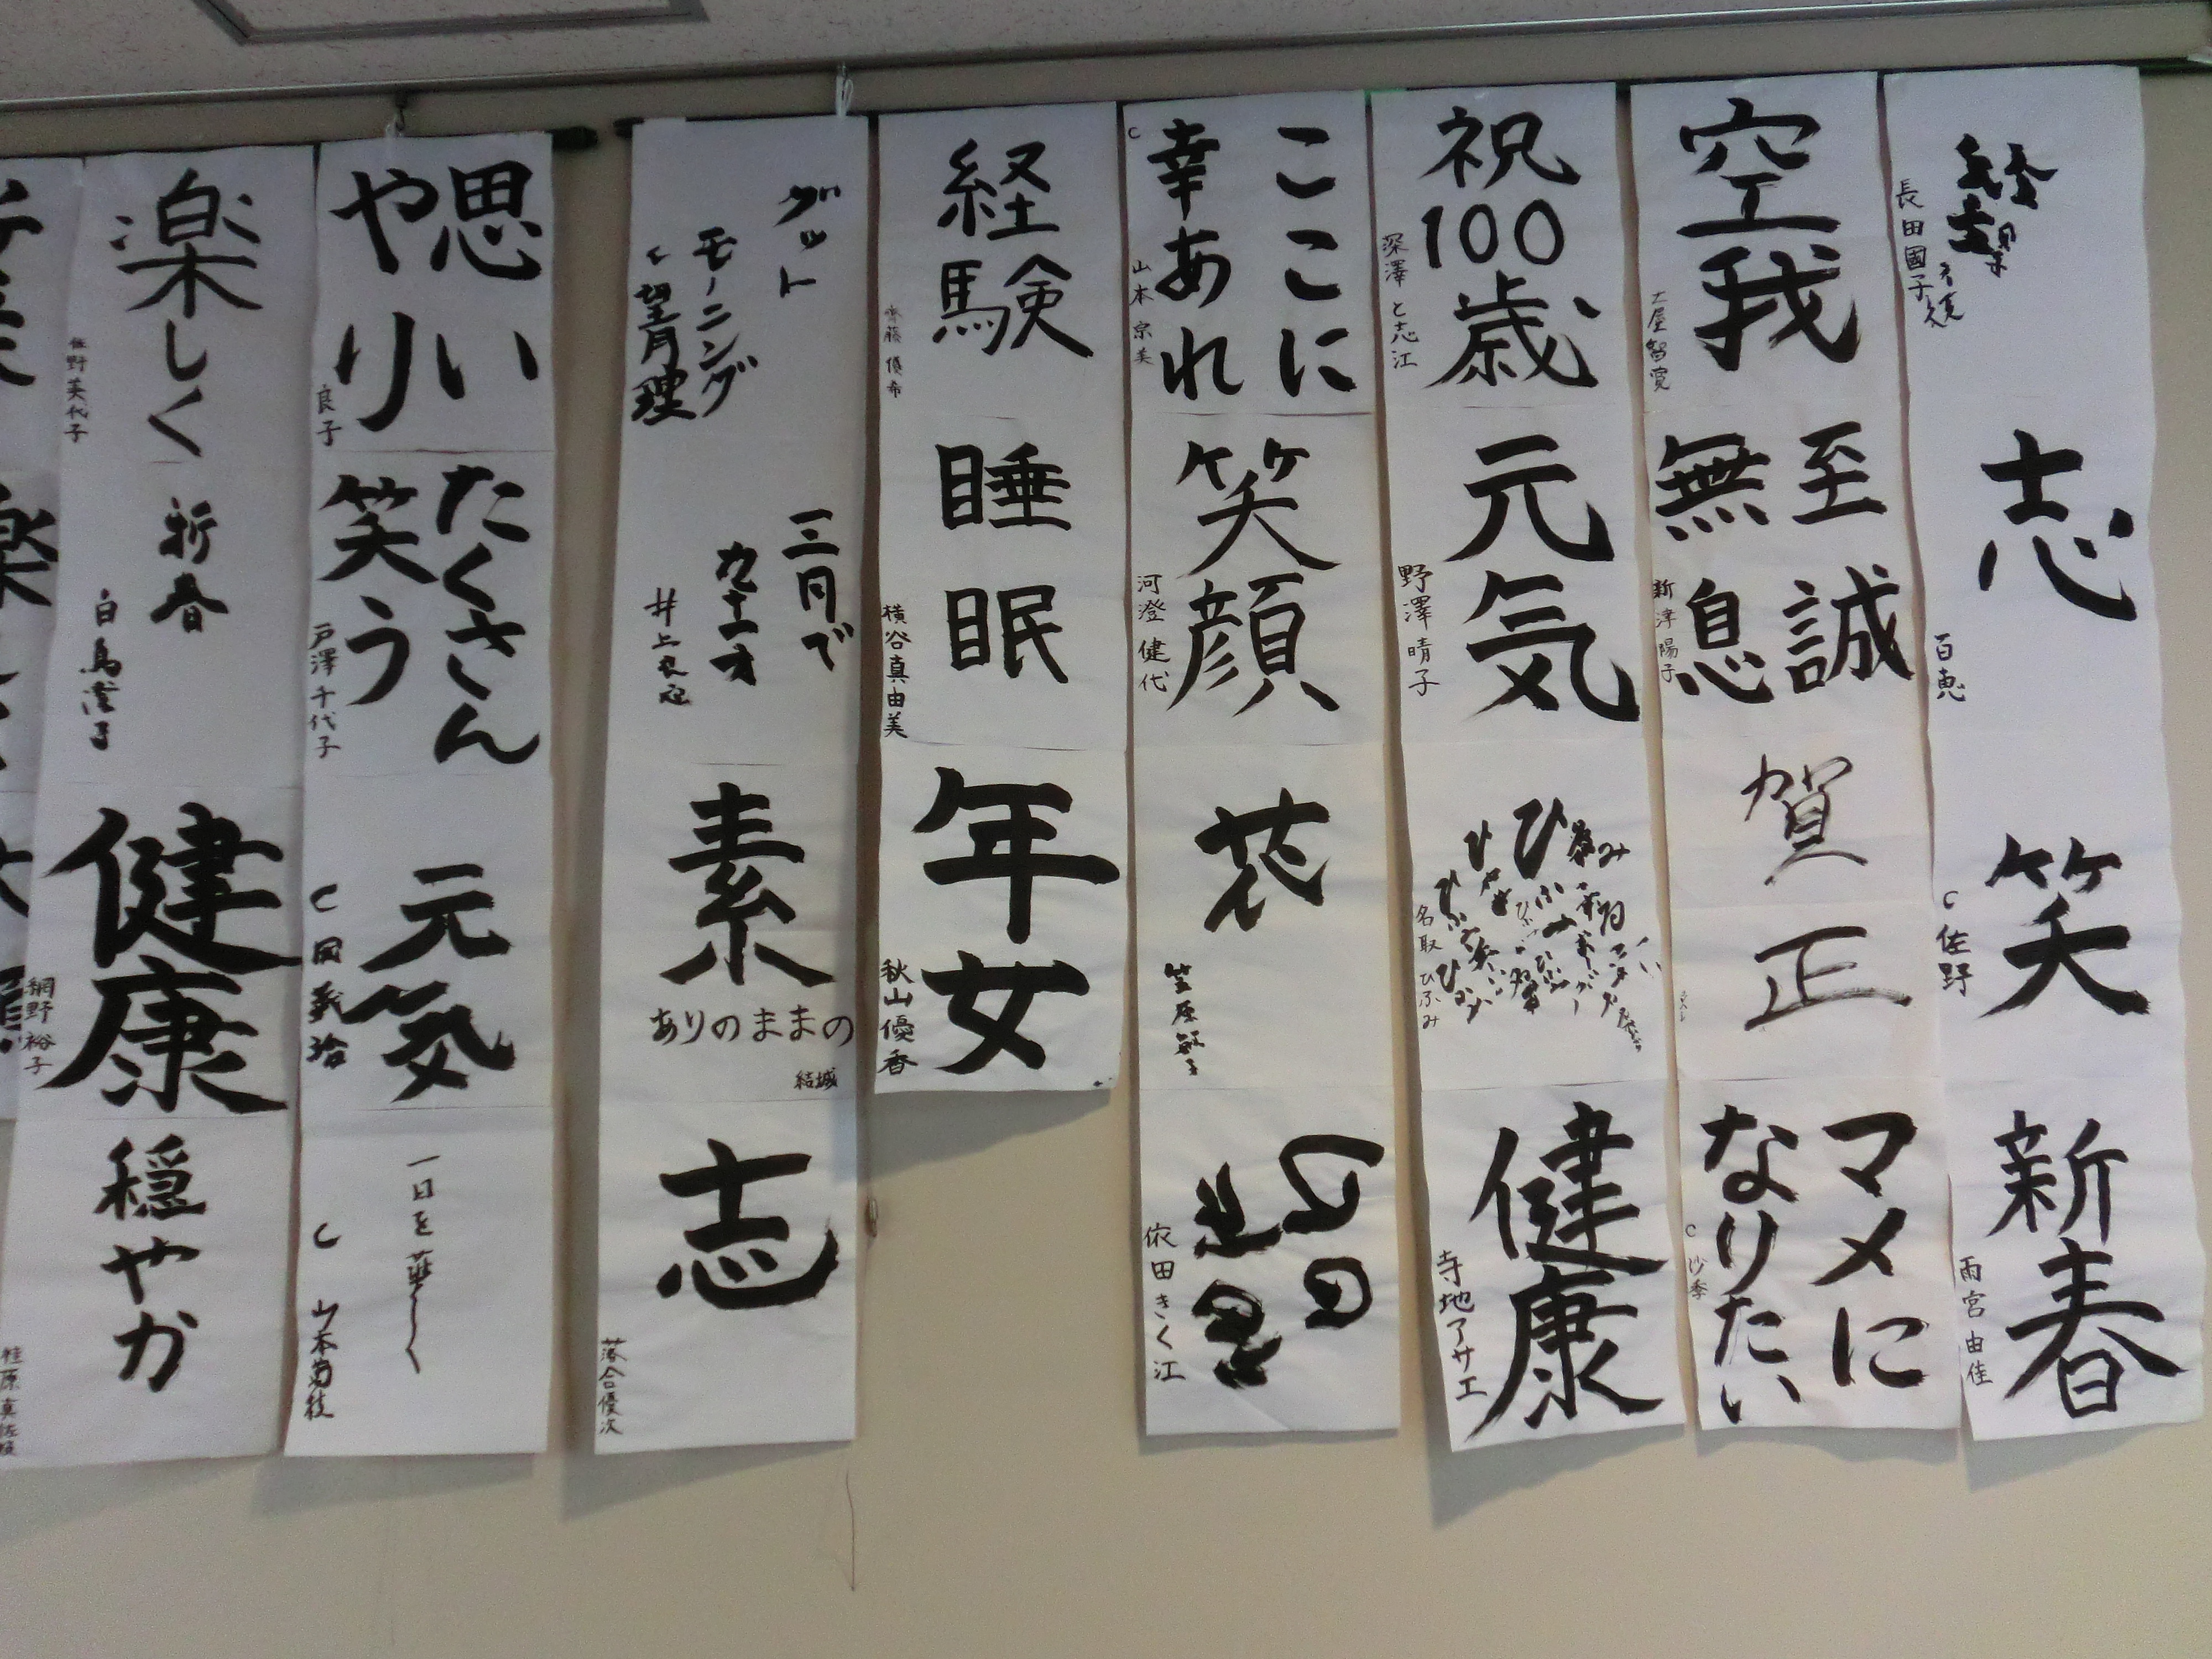 長田國子
志
百恵
笑
佐野
新春
雨宮由佳
空我
土屋智寛
至誠
無息
新津陽子
賀正
マメに
なりたい
沙季
祝100歳
深澤と志江
元気
野澤晴子
名取ひふみ
健康
寺地アサエ
ここに
幸あれ
山本宗美
笑顔
河澄健代
花
笠原
依田きく江
経験
齊藤優希
睡眠
横谷真由美
年女
秋山優香
グット
モーニング
望月理
三月で
九十一才
井上
素
ありのままの
結城
志
落合優次
思い
やり
良子
たくさん
笑う
戸澤千代子
元気
岡義治
一日を
山本菊枝
楽しく
佐野美代子
新春
白鳥
健康
網野裕子
穏やか